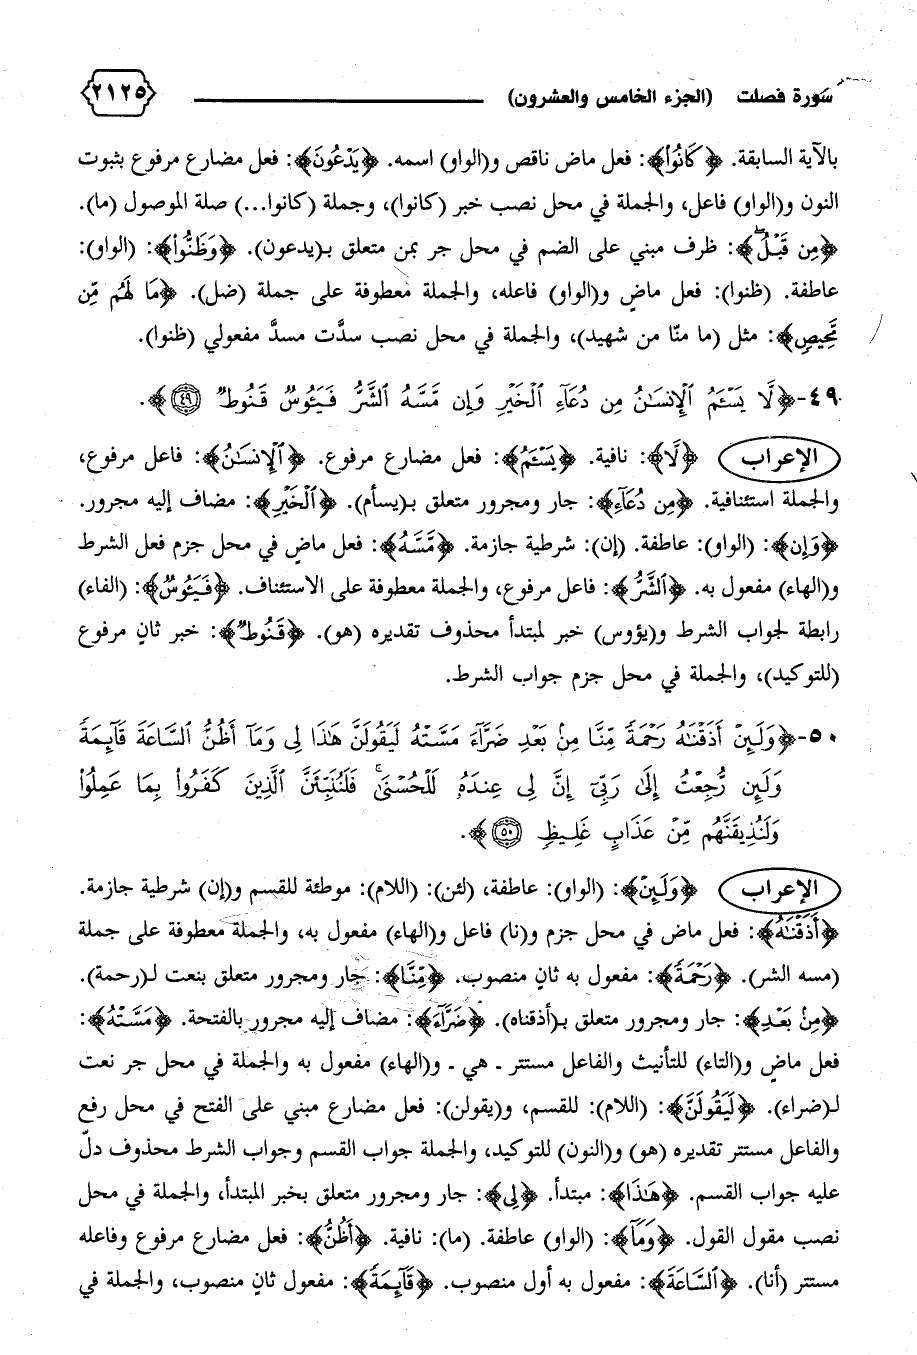 سورة فصلت (الجزء الخامس والعشرون) ٢١٢٥
بالآية السابقة. ﴿كَانُوا۟﴾: فعل ماض ناقص و(الواو) اسمه. ﴿يَدْعُونَ﴾: فعل مضارع مرفوع بثبوت
النون و(الواو) فاعل، والجملة في محل نصب خبر (كانوا)، وجملة (كانوا...) صلة الموصول (ما).
﴿مِن قَبْلُۖ﴾: ظرف مبني على الضم في محل جر بمن متعلق بـ(يدعون). ﴿وَظَنُّوا۟﴾: (الواو):
عاطفة. (ظنوا): فعل ماضٍ و(الواو) فاعله، والجملة معطوفة على جملة (ضل). ﴿مَا لَهُم مِّن
مَّحِيصٍ﴾: مثل (ما منّا من شهيد)، والجملة في محل نصب سدَّت مسدَّ مفعولي (ظنوا).
٤٩-﴿لَّا يَسْـَٔمُ ٱلْإِنسَـٰنُ مِن دُعَآءِ ٱلْخَيْرِ وَإِن مَّسَّهُ ٱلشَّرُّ فَيَـُٔوسٌ قَنُوطٌ ٤٩﴾.
الإعراب ﴿لَّا﴾: نافية. ﴿يَسْـَٔمُ﴾: فعل مضارع مرفوع. ﴿ٱلْإِنسَـٰنُ﴾: فاعل مرفوع،
والجملة استئنافية. ﴿مِن دُعَآءِ﴾: جار ومجرور متعلق بـ(يسأم). ﴿ٱلْخَيْرِ﴾: مضاف إليه مجرور.
﴿وَإِن﴾: (الواو): عاطفة. (إن): شرطية جازمة. ﴿مَّسَّهُ﴾: فعل ماضٍ في محل جزم فعل الشرط
و(الهاء) مفعول به. ﴿ٱلشَّرُّ﴾: فاعل مرفوع، والجملة معطوفة على الاستئناف. ﴿فَيَـُٔوسٌ﴾: (الفاء)
رابطة لجواب الشرط و(يؤوس) خبر لمبتدأ محذوف تقديره (هو). ﴿قَنُوطٌ﴾: خبر ثانٍ مرفوع
(للتوكيد)، والجملة في محل جزم جواب الشرط.
٥٠-﴿وَلَئِنْ أَذَقْنَـٰهُ رَحْمَةً مِّنَّا مِنۢ بَعْدِ ضَرَّآءَ مَسَّتْهُ لَيَقُولَنَّ هَـٰذَا لِى وَمَآ أَظُنُّ ٱلسَّاعَةَ قَآئِمَةً
وَلَئِن رُّجِعْتُ إِلَىٰ رَبِّىٓ إِنَّ لِى عِندَهُۥ لَلْحُسْنَىٰۚ فَلَنُنَبِّئَنَّ ٱلَّذِينَ كَفَرُوا۟ بِمَا عَمِلُوا۟
وَلَنُذِيقَنَّهُم مِّنْ عَذَابٍ غَلِيظٍ ٥٠﴾.
الإعراب ﴿وَلَئِنْ﴾: (الواو): عاطفة، (لئن): (اللام): موطئة للقسم و(إن) شرطية جازمة.
﴿أَذَقْنَـٰهُ﴾: فعل ماض في محل جزم و(نا) فاعل و(الهاء) مفعول به، والجملة معطوفة على جملة
(مسه الشر). ﴿رَحْمَةً﴾: مفعول به ثانٍ منصوب. ﴿مِّنَّا﴾: جار ومجرور متعلق بنعت لـ(رحمة).
﴿مِنۢ بَعْدِ﴾: جار ومجرور متعلق بـ(أذقناه). ﴿ضَرَّآءَ﴾: مضاف إليه مجرور بالفتحة. ﴿مَسَّتْهُ﴾:
فعل ماضٍ و(التاء) للتأنيث والفاعل مستتر ـ هي ـ و(الهاء) مفعول به والجملة في محل جر نعت
لـ(ضراء). ﴿لَيَقُولَنَّ﴾: (اللام): للقسم، و(يقولن): فعل مضارع مبني على الفتح في محل رفع
والفاعل مستتر تقديره (هو) و(النون) للتوكيد، والجملة جواب القسم وجواب الشرط محذوف دلّ
عليه جواب القسم. ﴿هَـٰذَا﴾: مبتدأ. ﴿لِى﴾: جار ومجرور متعلق بخبر المبتدأ، والجملة في محل
نصب مقول القول. ﴿وَمَآ﴾: (الواو) عاطفة. (ما): نافية. ﴿أَظُنُّ﴾: فعل مضارع مرفوع وفاعله
مستتر (أنا). ﴿ٱلسَّاعَةَ﴾: مفعول به أول منصوب. ﴿قَآئِمَةً﴾: مفعول ثانٍ منصوب، والجملة في